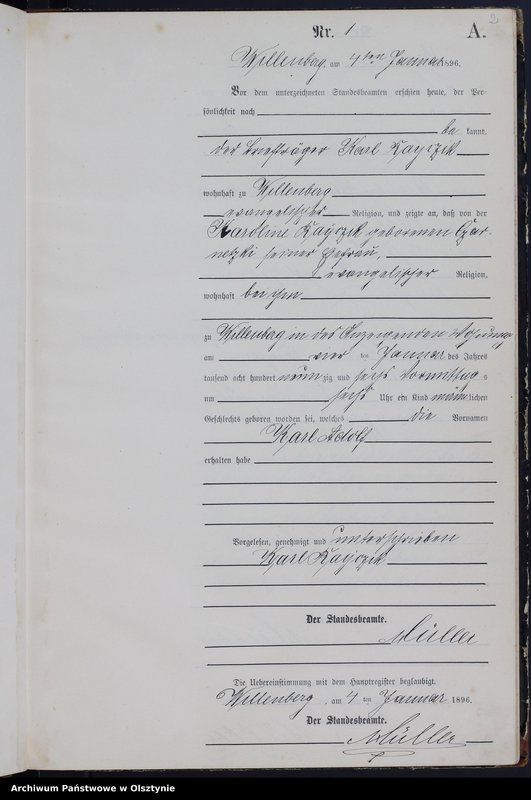 2
Nr. 1 A.
Willenberg, am 4ten Januar 1896.
Vor dem unterzeichneten Standesbeamten erschien heute, der Per-
sönlichkeit nach
be kannt,
der Briefträger Karl Kayczik
wohnhaft zu Willenberg
evangelischer Religion, und zeigte an, daß von der
Karoline Kayczik gebornen Czar-
netzki seiner Ehefrau,
evangelischer Religion,
wohnhaft bei ihm
zu Willenberg in des Anzeigenden Wohnung
am vier ten Januar des Jahres
tausend acht hundert neun zig und sechs Vormittag s
um sechs Uhr ein Kind männ lichen
Geschlechts geboren worden sei, welches die Vornamen
Karl Adolf
erhalten habe
Vorgelesen, genehmigt und unterschrieben
Karl Kayczik
Der Standesbeamte.
Müller
Die Uebereinstimmung mit dem Hauptregister beglaubigt.
Willenberg, am 4 ten Januar 1896.
Der Standesbeamte.
Müller
Archiwum Państwowe w Olsztynie